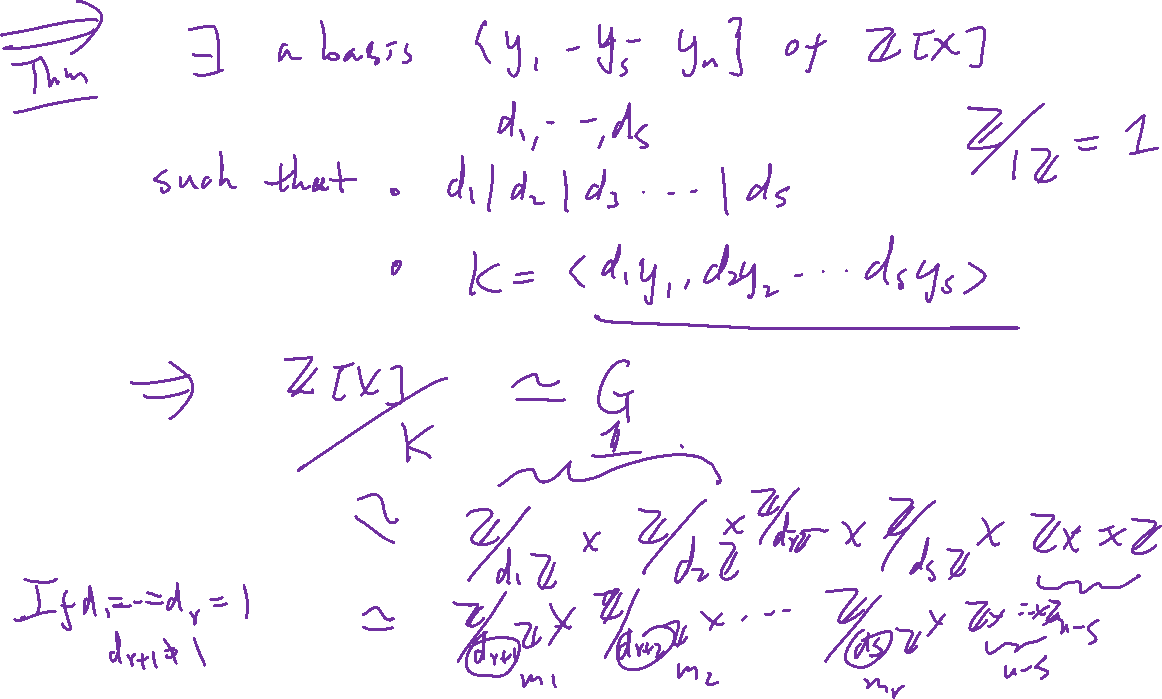 ⟹ Thm ∃ a basis {y₁ -- yₛ -- yₙ} of ℤ[X]
d₁, - -, dₛ
ℤ/1ℤ = 1
such that • d₁ | d₂ | d₃ ··· | dₛ
• K = < d₁y₁, d₂y₂ ··· dₛyₛ >
⟹ ℤ[X]/K ≃ G
1
≃ ℤ/d₁ℤ × ℤ/d₂ℤ × ℤ/dᵣℤ × ℤ/dₛℤ × ℤ× ×ℤ
If d₁=--=dᵣ = 1
dᵣ₊₁ ≠ 1
≃ ℤ/dᵣ₊₁ℤ × ℤ/dᵣ₊₂ℤ × ··· ℤ/dₛℤ × ℤ× ··×ℤ n-s
m₁ m₂ mᵣ n-s